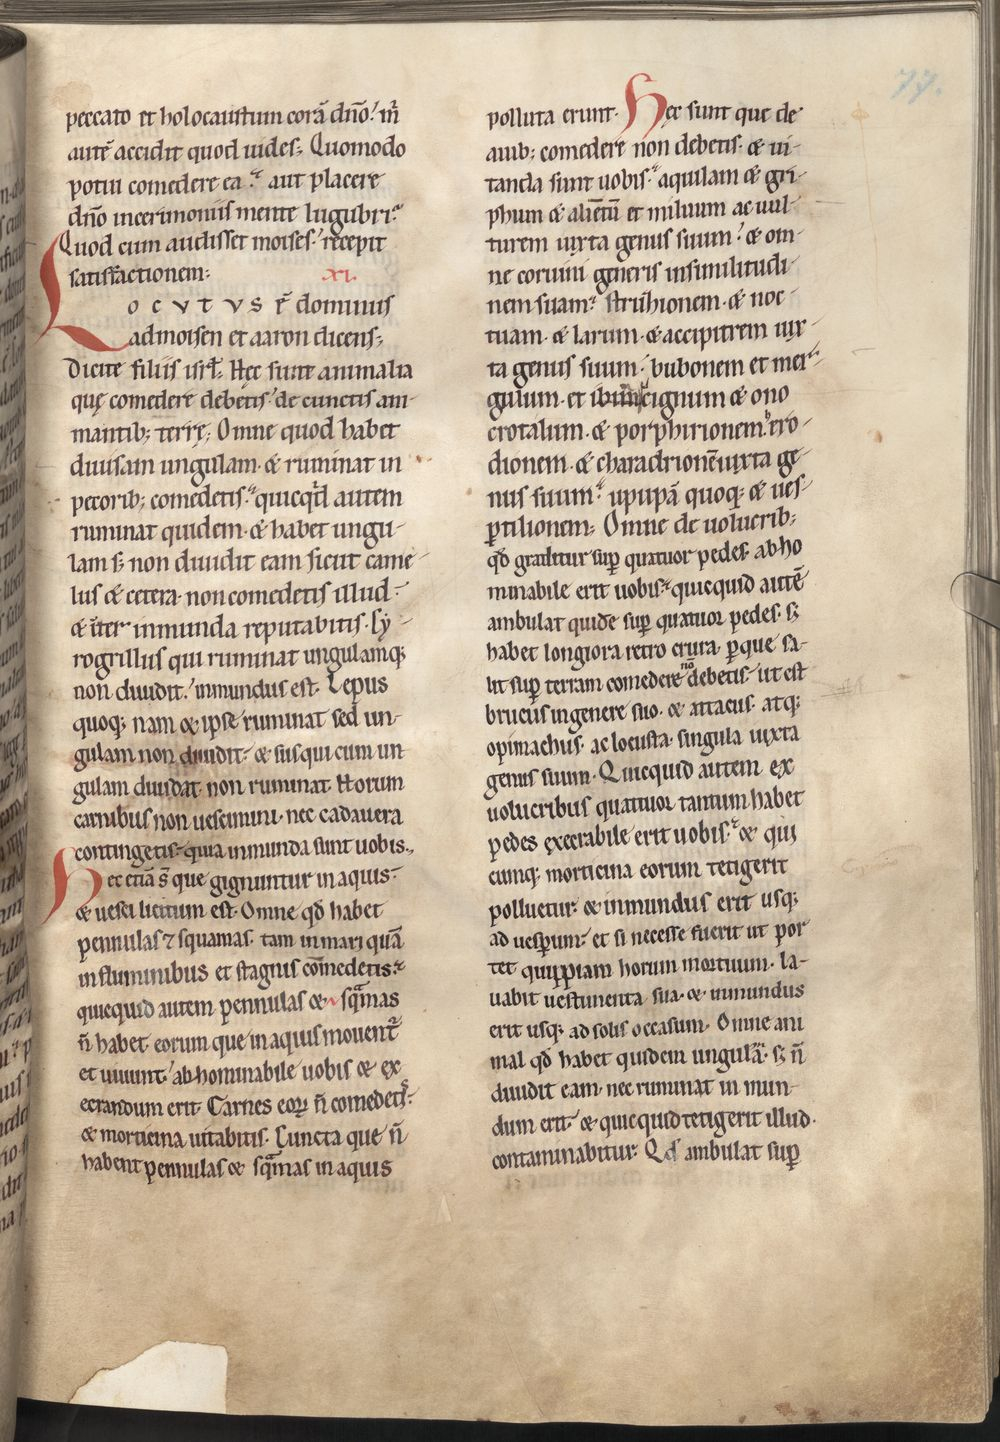 77.
peccato et holocaustum corā dnō. m̄
autē accidit quod uides; Quomodo
potui comedere ea? aut placere
dnō incerimoniis mente lugubri?
Quod cum audisset moises. recepit
satisfactionem: XI.
LOCVTVS ē dominus
admoisen et aaron dicens;
Dicite filiis isrl. Hec sunt animalia
quę comedere debetis de cunctis ani-
mantib; terrę; Omne quod habet
diuisam ungulam. & ruminat in
pecorib; comedetis. quicqd autem
ruminat quidem. & habet ungu-
lam s; non diuidit eam sicut came-
lus & cetera. non comedetis illud.
& inter inmunda reputabitis. Cy-
rogrillus qui ruminat ungulamq;
non diuidit. inmundus est. Lepus
quoq; nam & ipse ruminat sed un-
gulam non diuidit. & sus qui cum un
gulam diuidat. non ruminat. Horum
carnibus non uescimini. nec cadauera
contingetis. quia inmunda sunt uobis.
Hec etiā s̄ que gignuntur in aquis.
& uesci licitum est. Omne qd habet
pennulas 7 squamas. tam in mari quā
in fluminibus et stagnis cōmedetis.
quicquid autem pennulas & sqmas
ñ habet. eorum que in aquis mouent
et uiuunt. abhominabile uobis & ex
ecrandum erit. Carnes eoꝝ ñ comedetis.
& morticina uitabitis. Cuncta que ñ
habent pennulas & sqmas in aquis
polluta erunt. Hęc sunt que de
auib; comedere non debetis. & ui-
tanda sunt uobis. aquilam & gri-
phum & aliētū et miluum ac uul-
turem iuxta genus suum. & om-
ne coruini generis insimilitudi-
nem suam. struthionem. & noc-
tuam. & larum. & accipitrem iux-
ta genus suum. bubonem et mer-
gulum. et ibin cignum & ono
crotalum. & porphirionem. ero-
dionem. & charadrionē iuxta ge-
nus suum. upupā quoq; & ues-
ptilionem; Omne de uolucrib;
qd graditur sup quatuor pedes. abho
minabile erit uobis. quicquid autē
ambulat quidē sup quatuor pedes. s;
habet longiora retro crura. p que sa-
lit sup terram comedere nō debetis. ut est
brucus in genere suo. & attacus. atq;
opimachus. ac locusta. singula iuxta
genus suum. Quicquid autem ex
uolucribus quattuor tantum habet
pedes execrabile erit uobis. & qui
cumq; morticina eorum tetigerit
polluetur. & inmundus erit usq;
ad uesperum. et si necesse fuerit ut por
tet quippiam horum mortuum. la-
uabit uestimenta sua. & inmundus
erit usq; ad solis occasum. Omne ani
mal qd habet quidem ungulā. s; ñ
diuidit eam. nec ruminat in mun-
dum erit. & quicquid tetigerit illud.
contaminabitur. Qd ambulat sup